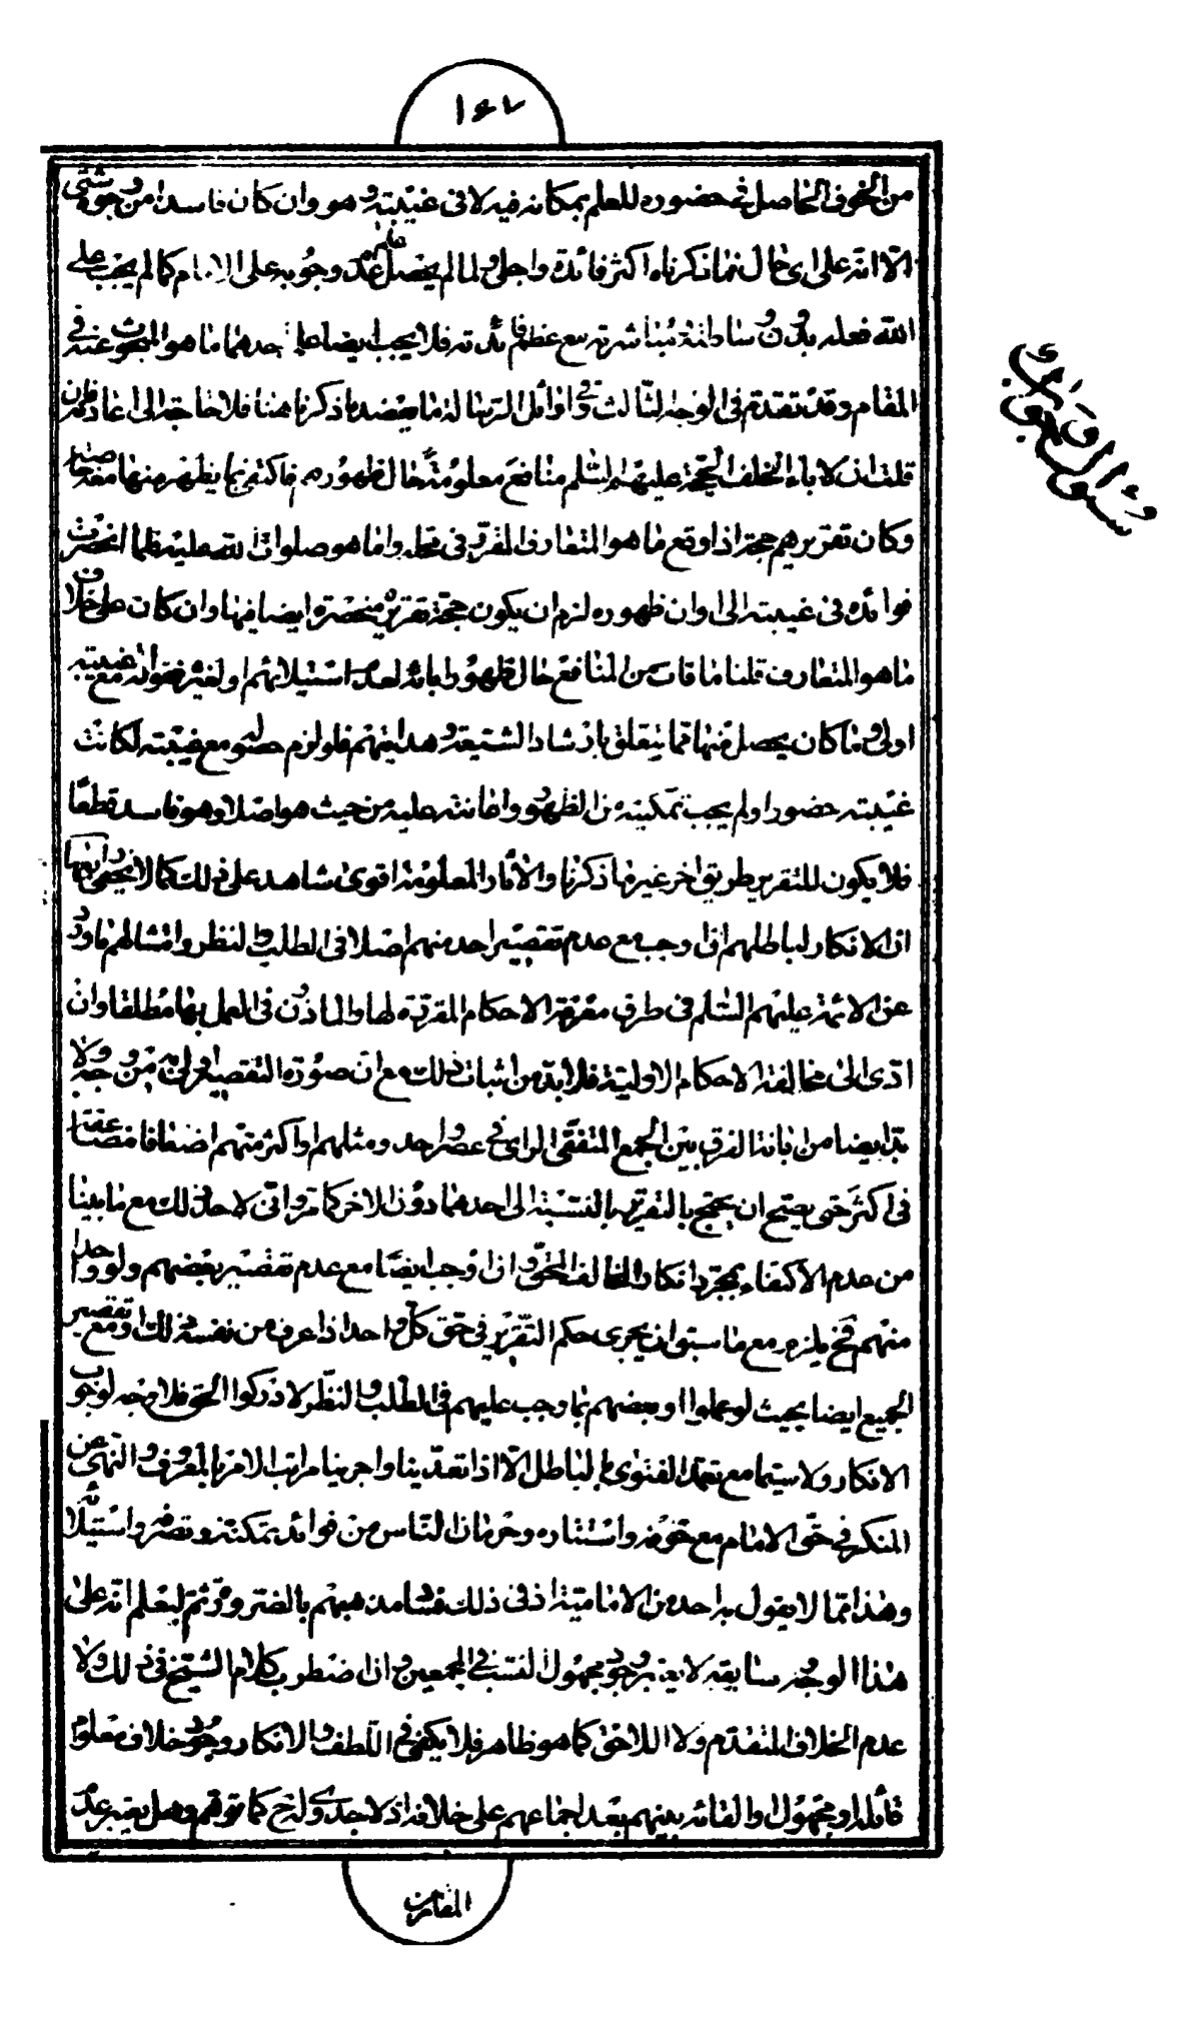 ١٤٧
سؤال وجواب
من الخوف الحاصل في حضوره للعلم بمكانه فيه لا في غيبته وهو وان كان فاسدا من وجوه شتى
الا انه على اى حال فما ذكرناه اكثر فائدة واجلى ولما لم يحصل عدم وجوبه على الامام كما لم يجب على
الله فعله بدون مباشرته مع عظم فائدته فلا يجب ايضا على احدهما ما هو المبحوث عنه في
المقام وقد تقدم في الوجه الثالث وفي اوائل الرسالة ما يعضد ما ذكرنا هنا فلا حاجة الى اعادته فان
قلت ان لاباء الخلف الحجة عليهم السلم منافع معلومة حال ظهورهم فاكتفى بما يظهر منها معه
وكان تقريرهم حجة اذا وقع ما هو المتعارف المقرر في محله واما هو صلوات الله عليه فلما انحصرت
فوائده في غيبته الى اوان ظهوره لزم ان يكون حجة تقريره منحصرة ايضا فيها وان كان على خلاف
ما هو المتعارف قلنا ما فات من المنافع حال ظهور ابائه لعدم استيلائهم او لغيره ففواته مع غيبته
اولى وما كان يحصل منها مما يتعلق بارشاد الشيعة وهدايتهم فلو لزم حصوله مع غيبته لكانت
غيبته حضورا ولم يجب تمكينه من الظهور واعانته عليه من حيث هو اصلا وهو فاسد قطعا
فلا يكون للتقرير طريق اخر غير ما ذكرنا والاثار المعلومة اقوى شاهد على ذلك كما لا يخفى
ان الانكار لباطلهم ان وجب مع عدم تقصير احد منهم اصلا في الطلب والنظر وامتثالهم ما ورد
عن الائمة عليهم السلم في طرق معرفة الاحكام المقررة لها والماذون في العمل بها مطلقا وان
ادى الى مخالفة الاحكام الاولية فلابد من اثبات ذلك مع ان صورة التقصير من وجه ولا
بد ايضا من ابانة الفرق بين الجمع المتفقى الراى في عصر واحد ومثلهم او اكثر منهم اضعافا مضاعفة
في اكثر حتى يصح ان يحتج بالتقرير بالنسبة الى احدهما دون الاخر كما مر وانى لاحد ذلك مع ما بينا
من عدم الاكتفاء بمجرد انكار المخالف المحق وان اوجب ايضا مع عدم تقصير بعضهم ولو واحدا
منهم فح يلزم مع ما سبق ان يجرى حكم التقرير في حق كل واحد اذا عرف من نفسه ذلك ومع تقصير
الجميع ايضا بحيث لو عملوا او بعضهم بما وجب عليهم في الطلب والنظر لادركوا الحق فلا وجه لوجوب
الانكار ولا سيما مع تعمد الفتوى بالباطل الا اذا تعدينا واجرينا مراتب الامر بالمعروف والنهى عن
المنكر في حق الامام مع خوفه واستتاره وحرمان الناس من فوائد تمكنه وتصرفه واستيلائه
وهذا مما لا يقول به احد من الامامية اذ في ذلك فساد مذهبهم بالضرورة ثم ليعلم انه على
هذا الوجه سابقه لا يعتبر وجود مجهول النسب في المجمعين وان اضطرب كلام الشيخ في ذلك ولا
عدم الخلاف المتقدم ولا اللاحق كما هو ظاهر فلا يكفى في اللطف والانكار وجود خلاف معلوم
قائله او مجهول والقائه بينهم بعد اجماعهم على خلافه اذ لا جدوى له ح كما توهم وهل يعتبر عدم
المقارن